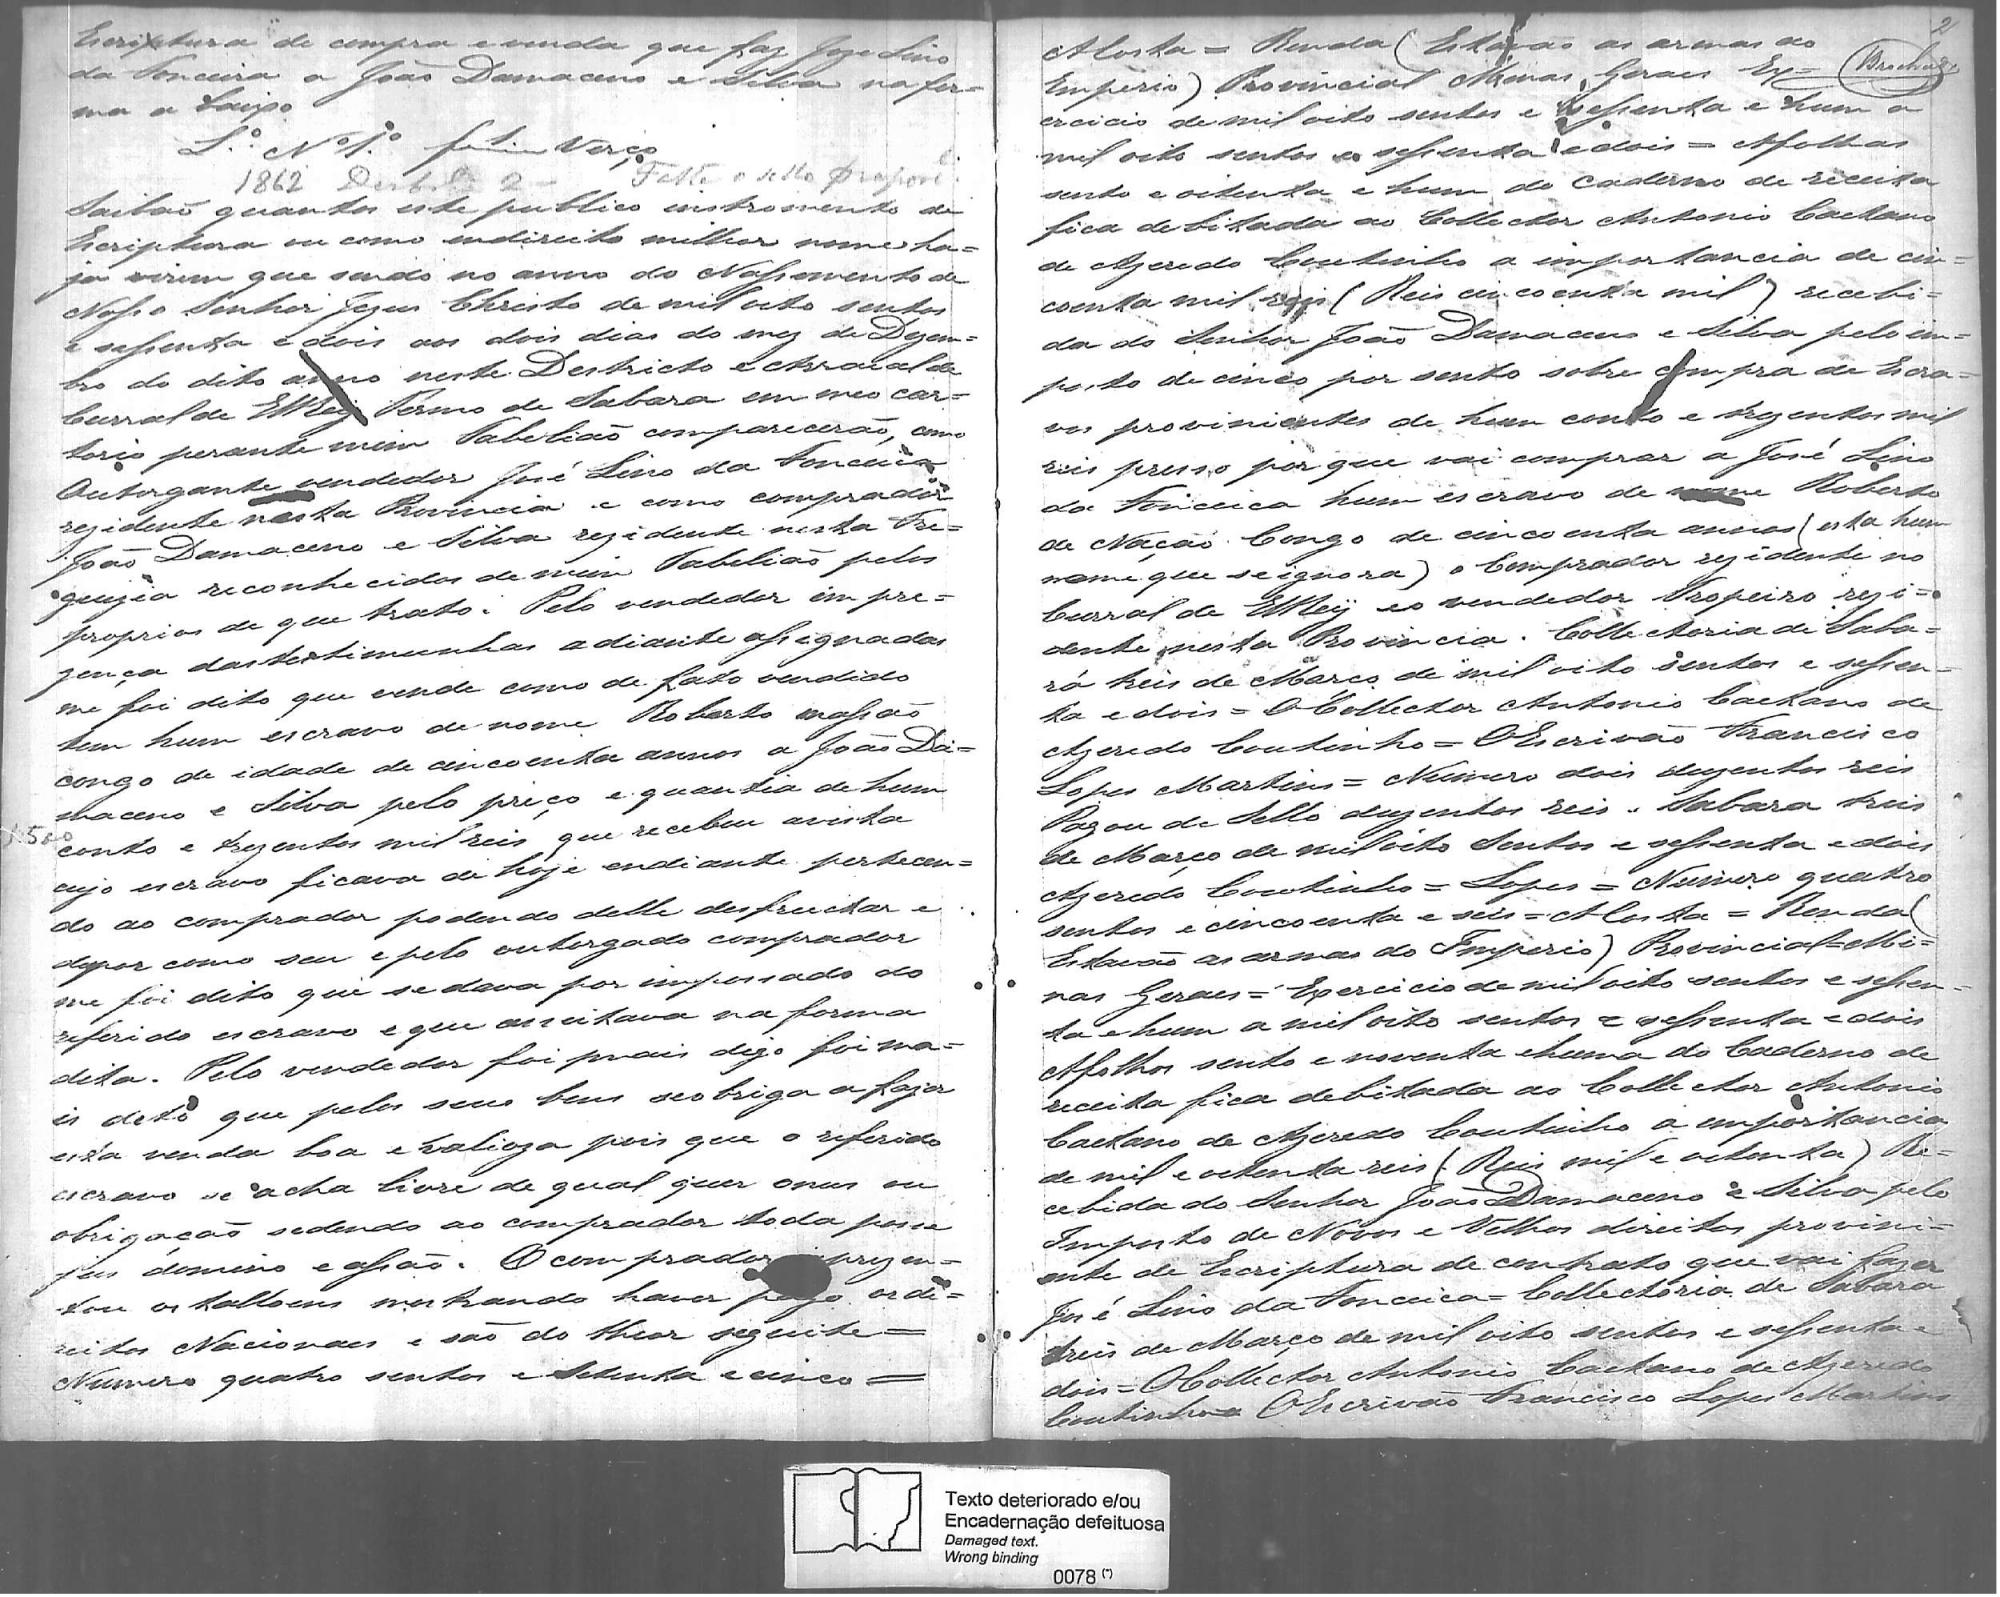 Escriptura de compra e venda que faz Joze Lino
da Fonceira a João Damaceno e Silva na for=
ma a baixo
L.º Nº 1.º Verço
1862 Dezbro 2 - Falta o sello propor.l
Saibaõ quantos este publico enstromento de
Escriptura ou como endireito milhor nome ha=
ja virem que sendo no anno do Nassemento de
Nosso Senhor Jezus Christo de mil oito sentos
e sessenta e dois aos dois dias do mez de Dezem=
bro do dito anno neste Destricto e Arraial de
Curral de ElRey Termo de Sabara em meo car=
torio perante mim Tabeliaõ comparecerão, como
Outorgante vendedor José Lino da Fonceica
rezidente nesta Provincia e como comprador
João Damaceno e Silva rezidente nesta Fre=
guezia reconhecidos de mim Tabeliaõ pelos
proprios de que trato. Pelo vendedor im pre=
zença das testimunhas adiante assignadas
me foi dito que vende como de fato vendido
tem hum escravo de nome Roberto nassão
congo de idade de cincoenta annos a João Da=
maceno e Silva pelo preço e quantia de hum
conto e trezentos mil reis que recebeu avista
cujo escravo ficava de hoje endiante pertecen=
do ao comprador podendo delle desfructar e
dispor como seu e pelo outorgado comprador
me foi dito que se dava por impossado do
referido escravo e que asseitava na forma
dita. Pelo vendedor foi pmais digo foi ma=
is dito que pelos seus bens seobriga a fazer
esta venda boa e valioza pois que o referido
escravo se acha livre de qual quer onus ou
obrigação sedendo ao comprador toda posse
jus dominio e assão. O comprador aprezen=
tou os talloens mostrando haver pago os di=
reitos Nacionaes e são do theor seguinte=
Numero quatro sentos e Setenta e cinco=
2
Alosta= Renda (Estavaõ as armas do
Emperio) Provincial Minas Geraes Ex=
ercicio de mil oito sentos e sessenta e hum a
mil oito sentos e sessenta e dois = Afolhas
sento e oitenta e hum do caderno de receita
fica debitada ao Collector Antonio Caetano
de Azeredo Coutinho a importancia de cin=
coenta mil reis (Reis cincoenta mil) recebi=
da do Senhor João Damaceno e Silva pelo im=
posto de cinco por sento sobre compra de Escra=
vos provinientes de hum conto e trezentos mil
reis presso porque vai comprar a José Lino
da Fonceica hum escravo de nome Roberto
de Nação Congo de cincoenta annos (esta hum
nome que se ignora) o Comprador rezidente no
Curral de ElRey eo vendedor Tropeiro rezi=
dente nesta Provincia. Collectoria de Saba=
rá treis de Março de mil oito sentos e sessen=
ta e dois= O Collector Antonio Caetano de
Azeredo Coutinho= OEscrivão Francisco
Lopes Martins= Numero dois duzentos reis
Pagou de Sello duzentos reis. Sabara treis
de Março de mil oito Sentos e sessenta e dois
Azeredo Coutinho= Lopes= Numero quatro
sentos e cincoenta e seis= Alosta= Renda(
Estavão as armas do Imperio) Provincial=Mi=
nas Geraes= Exercicio de mil oito sentos e sessen=
ta e hum a mil oito sentos e sessenta e dois
Afolhas sento e noventa e huma do Caderno de
receita fica debitada ao Collector Antonio
Caetano de Azeredo Coutinho a emportancia
de mil e oitenta reis (Reis mil e oitenta) Re=
cebida do Senhor João Damaceno e Silva pelo
Imposto de Novos e Velhos direitos provini=
ente de Escriptura de contrato que vai fazer
José Lino da Fonceica= Collectoria de Sabara
treis de Março de mil oito sentos e sessenta e
dois= OCollector Antonio Caetano de Azeredo
Coutinho= OEscrivão Francisco Lopes Martins
Texto deteriorado e/ou
Encadernação defeituosa
Damaged text.
Wrong binding
0078 (*)